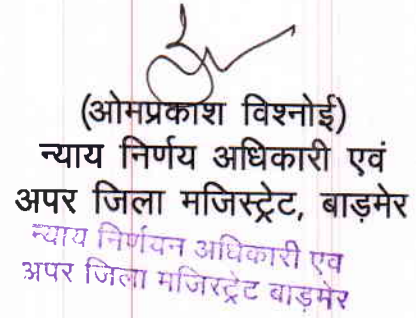 (ओमप्रकाश विश्नोई)
न्याय निर्णय अधिकारी एवं
अपर जिला मजिस्ट्रेट, बाड़मेर
न्याय निर्णयन अधिकारी एव
अपर जिला मजिस्ट्रेट बाड़मेर